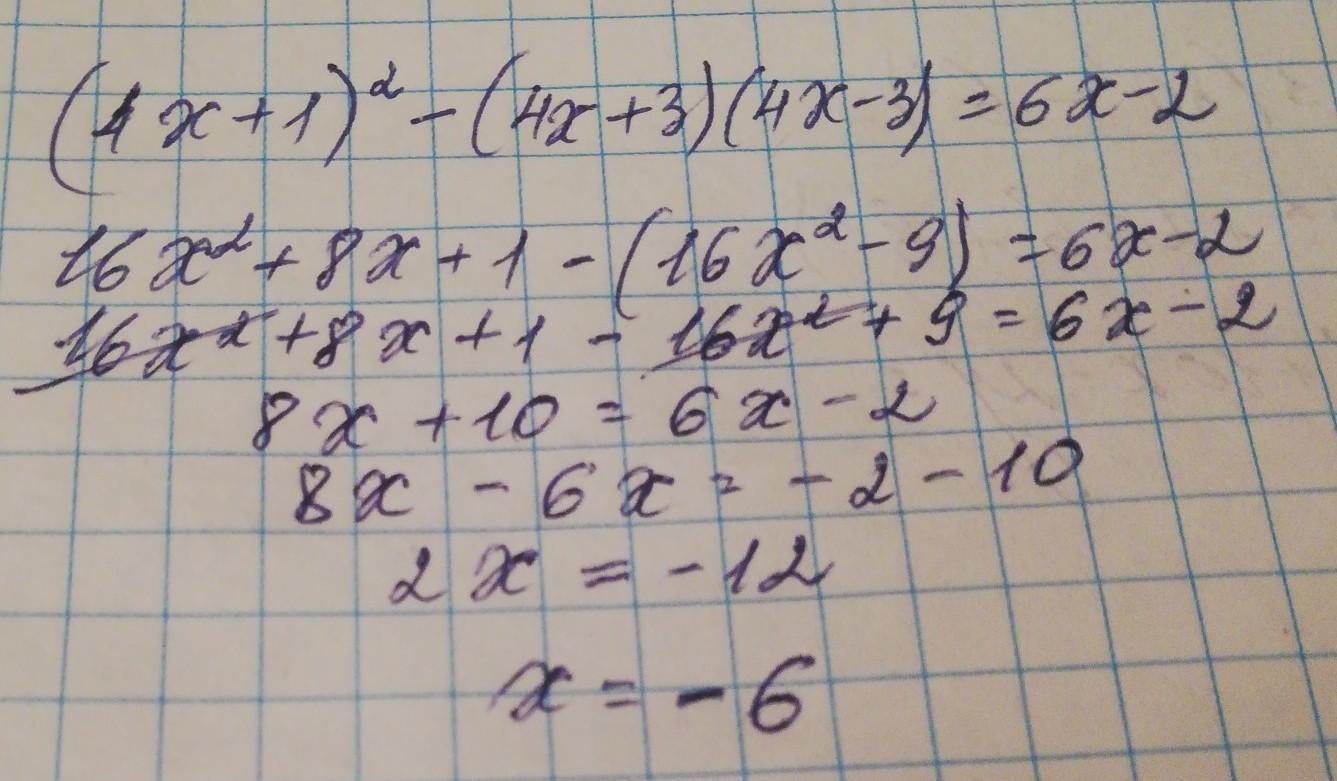 (4x+1)² - (4x+3)(4x-3) = 6x-2
16x² + 8x + 1 - (16x² - 9) = 6x-2
16x² + 8x + 1 - 16x² + 9 = 6x - 2
8x + 10 = 6x - 2
8x - 6x = -2 - 10
2x = -12
x = -6